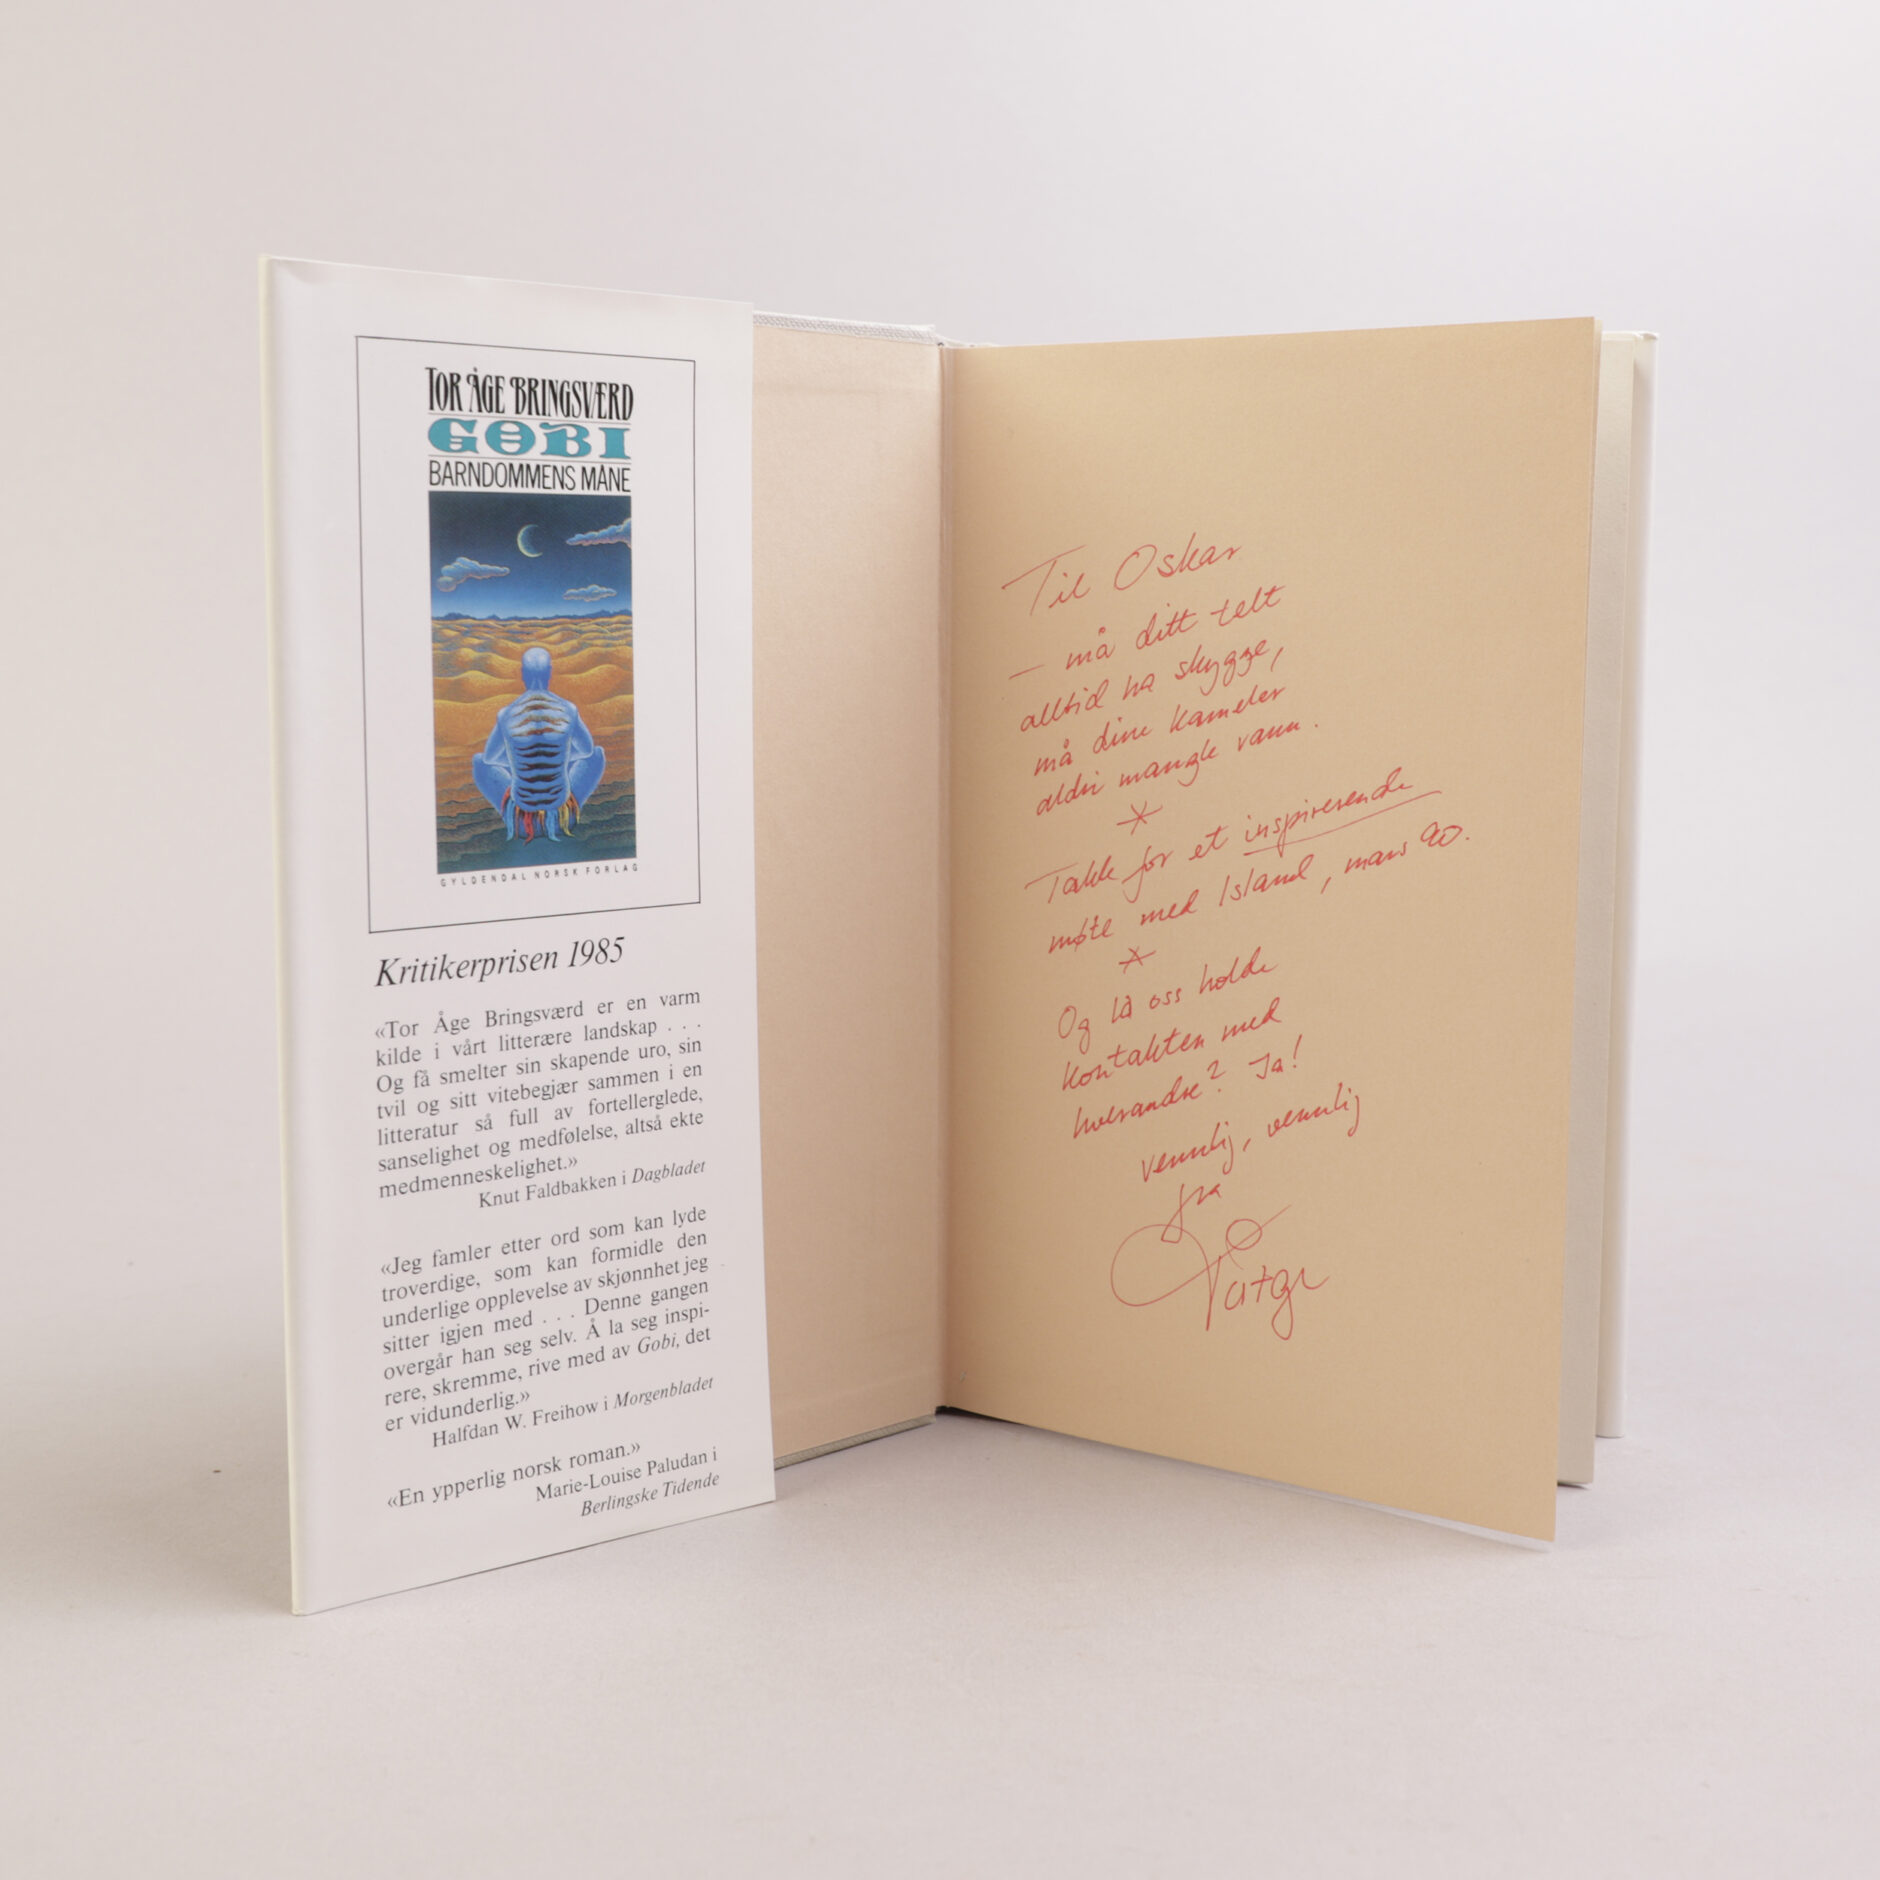 TOR ÅGE BRINGSVÆRD
GOBI
BARNDOMMENS MÅNE
GYLDENDAL NORSK FORLAG
Kritikerprisen 1985
«Tor Åge Bringsværd er en varm
kilde i vårt litterære landskap . . .
Og få smelter sin skapende uro, sin
tvil og sitt vitebegjær sammen i en
litteratur så full av fortellerglede,
sanselighet og medfølelse, altså ekte
medmenneskelighet.»
Knut Faldbakken i Dagbladet
«Jeg famler etter ord som kan lyde
troverdige, som kan formidle den
underlige opplevelse av skjønnhet jeg
sitter igjen med . . . Denne gangen
overgår han seg selv. Å la seg inspi-
rere, skremme, rive med av Gobi, det
er vidunderlig.»
Halfdan W. Freihow i Morgenbladet
«En ypperlig norsk roman.»
Marie-Louise Paludan i
Berlingske Tidende
Til Oskar
– må ditt telt
alltid ha skygge,
må dine kameler
aldri mangle vann.
*
Takk for et inspirerende
møte med Island, mars 90.
*
Og la oss holde
kontakten med
hverandre? Ja!
vennlig, vennlig
fra